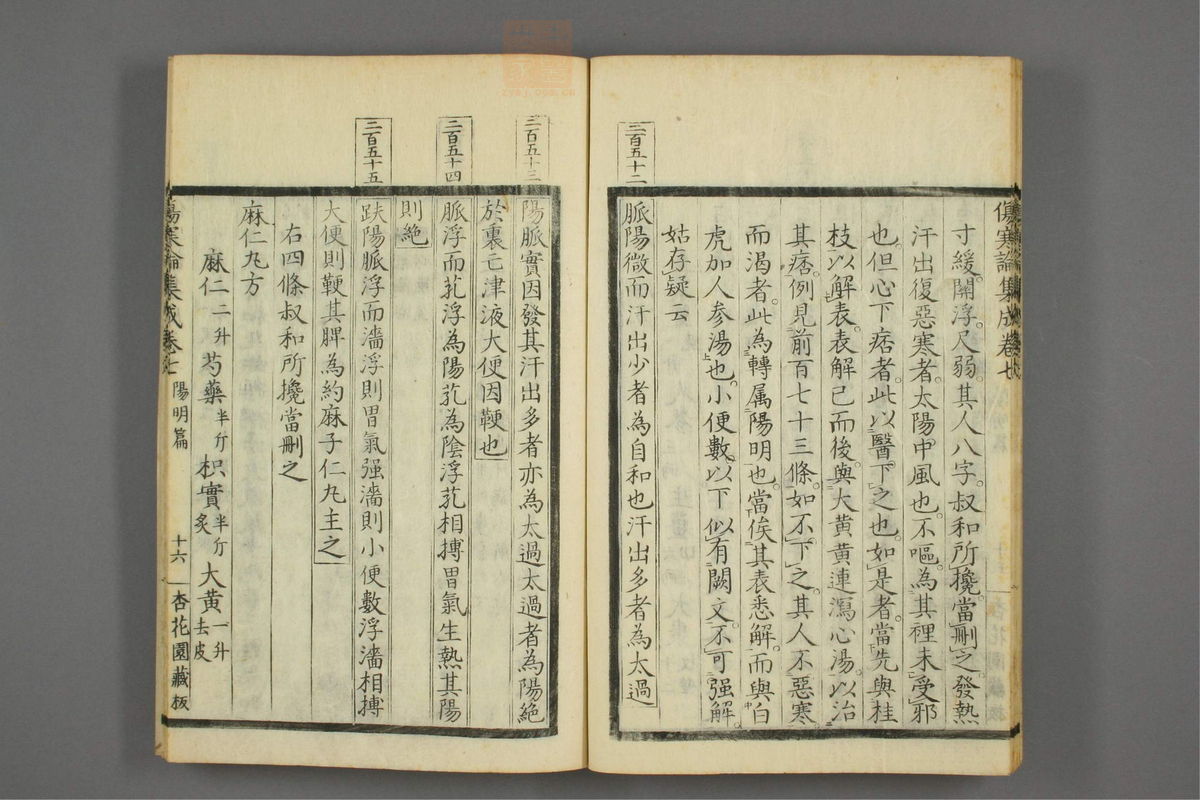 傷寒論集成卷七
寸緩關浮尺弱其人八字叔和所攙當刪之發熱
汗出復惡寒者太陽中風也不嘔為其裡未受邪
也但心下痞者此以醫下之也如是者當先與桂
枝以解表表解已而後與大黃黃連瀉心湯以治
其痞例見前百七十三條如不下之其人不惡寒
而渴者此為轉属陽明也當俟其表悉解而與白
虎加人参湯也小便數以下似有闕文不可强解
姑存疑云
二百五十二
脈陽微而汗出少者為自和也汗出多者為太過
二百五十三
陽脈實因發其汗出多者亦為太過太過者為陽絕
於裏亡津液大便因鞕也
二百五十四
脈浮而芤浮為陽芤為陰浮芤相摶胃氣生熱其陽
則絕
二百五十五
趺陽脈浮而濇浮則胃氣强濇則小便數浮濇相摶
大便則鞕其脾為約麻子仁丸主之
右四條叔和所攙當刪之
麻仁丸方
麻仁二升 芍藥半斤 枳實半斤炙 大黃一升去皮
傷寒論集成卷七 陽明篇 十六 杏花園藏板